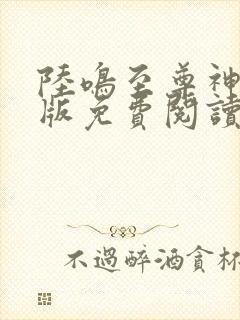 陸鳴至尊神
版免費閱讀
不過醉酒貪杯